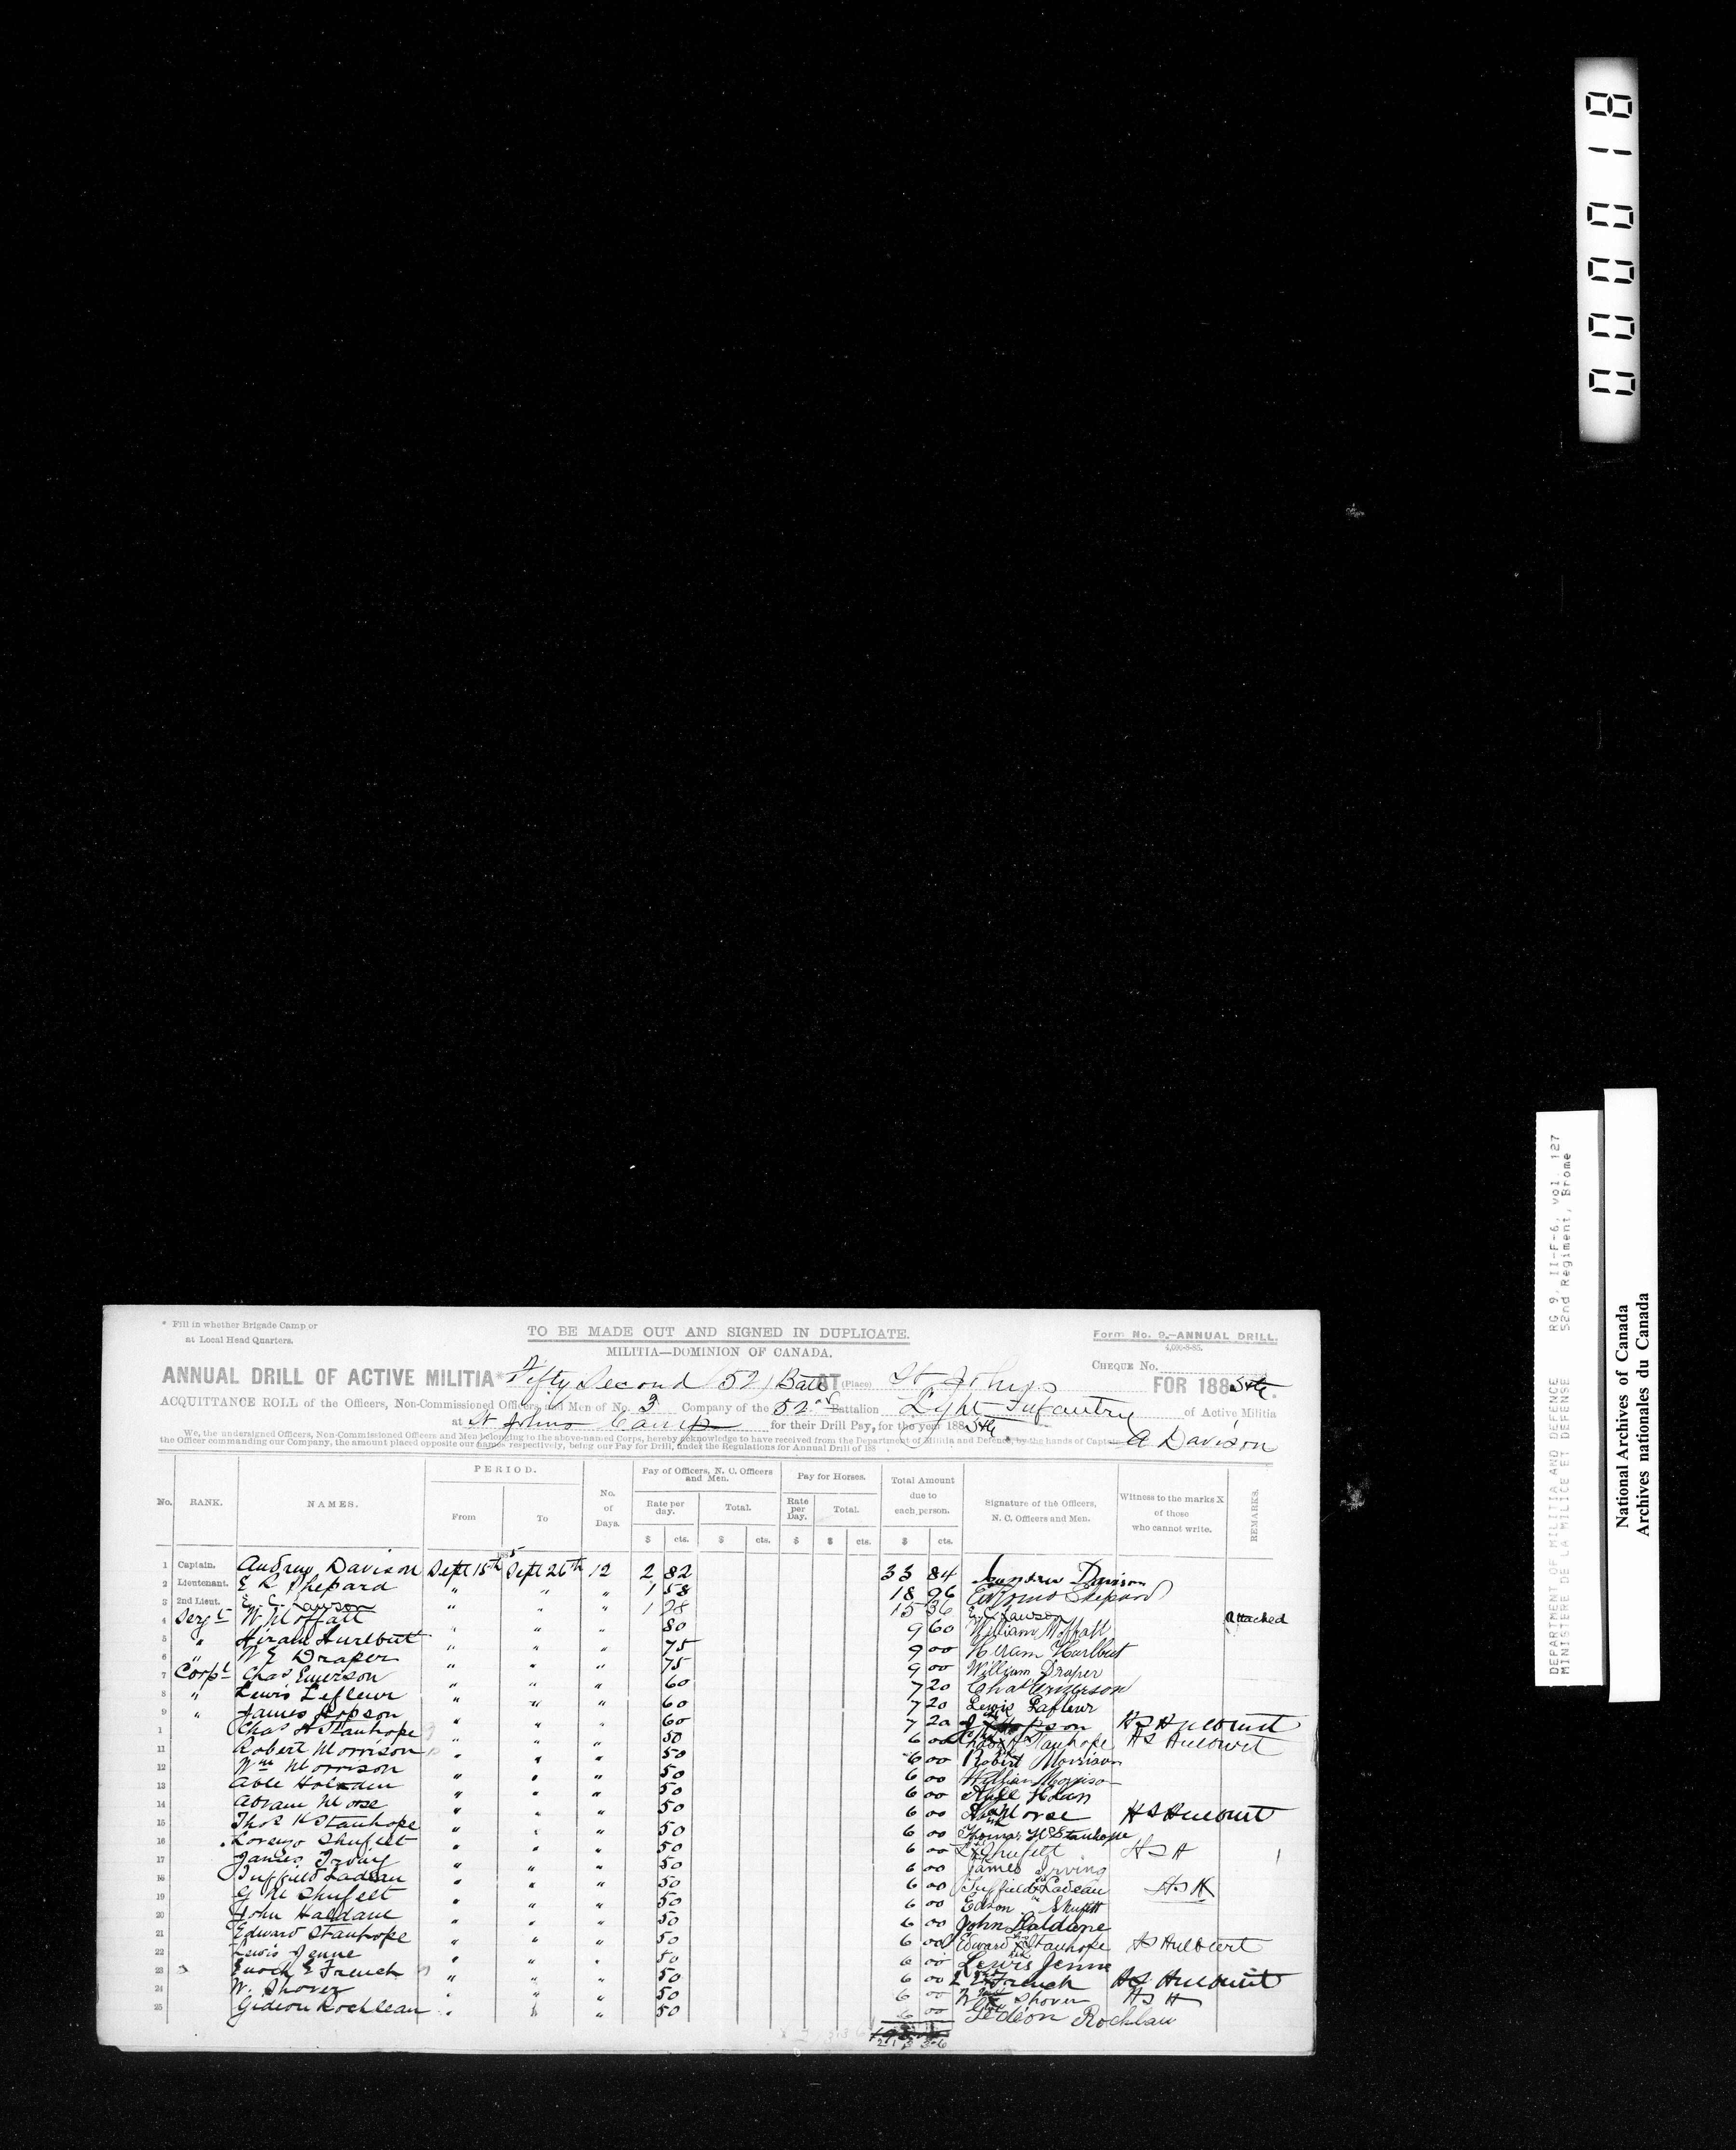 000018
DEPARTMENT OF MILITIA AND DEFENCE RG 9, II-F-6, vol 127
MINISTERE DE LA MILICE ET DEFENSE 52nd Regiment, Brome
National Archives of Canada
Archives nationales du Canada
* Fill in whether Brigade Camp or
at Local Head Quarters.
TO BE MADE OUT AND SIGNED IN DUPLICATE.
Form No. 9.—ANNUAL DRILL.
4,000-8-85.
MILITIA—DOMINION OF CANADA.
CHEQUE No.
ANNUAL DRILL OF ACTIVE MILITIA* Fifty Second 52 Batt AT (Place) St Johns FOR 1885
ACQUITTANCE ROLL of the Officers, Non-Commissioned Officers, and Men of No. 3 Company of the 52nd Battalion Light Infantry of Active Militia
at St Johns Camp for their Drill Pay, for the year 1885
We, the undersigned Officers, Non-Commissioned Officers and Men belonging to the above-named Corps, hereby acknowledge to have received from the Department of Militia and Defence, by the hands of Captain A Davison
the Officer commanding our Company, the amount placed opposite our names respectively, being our Pay for Drill, under the Regulations for Annual Drill of 188 .
No. RANK. NAMES. PERIOD. From To No. of Days. Pay of Officers, N. C. Officers and Men. Rate per day. Total. Pay for Horses. Rate per Day. Total. Total Amount due to each person. Signature of the Officers, N. C. Officers and Men. Witness to the marks X of those who cannot write. REMARKS.
$ cts. $ cts. $ $ cts. $ cts.
1885
1 Captain. Andrew Davison Sept 15th Sept 26th 12 2 82 33 84 Andrew Davison
2 Lieutenant. E R Shepard " " " 1 58 18 96 Shepard
3 2nd Lieut. E. C. Lawson " " " 1 28 15 36 E. C. Lawson
4 Sergt W Moffatt " " " 80 9 60 William Moffatt attached
5 " Hiram Hurlbut " " " 75 9 00 Hiram Hurlbut
6 " W E Draper " " " 75 9 00 William Draper
7 Corpl Chas Emerson " " " 60 7 20 Chas Emerson
8 " Lewis Lefleur " " " 60 7 20 Lewis Lafleur
9 " James Hopson " " " 60 7 20 J X Hopson H S Hulburt
1 Chas H Stanhope " " " 50 6 00 Chas X Stanhope H S Hulburt
11 Robert Morrison " " " 50 6 00 Robert Morrison
12 Wm Morrison " " " 50 6 00 William Morrison
13 Able Holden " " " 50 6 00
14 Abram Morse " " " 50 6 00 Morse H S Hulburt
15 Thos H Stanhope " " " 50 6 00 Thomas H Stanhope
16 Lorenzo Shufelt " " " 50 6 00 L X Shufelt H S H
17 James Irving " " " 50 6 00 James Irving
18 Suffield Ladeau " " " 50 6 00 Suffield X Ladeau H S H
19 G M Shufelt " " " 50 6 00 Edson Shufelt
20 John Haldane " " " 50 6 00 John Haldane
21 Edward Stanhope " " " 50 6 00 Edward X Stanhope H S Hulburt
22 Lewis Jenne " " " 50 6 00 Lewis Jenne
23 Enoch E French " " " 50 6 00 French H S Hulburt
24 W. Shover " " " 50 6 00 W X Shover H S H
25 Gideon Rochleau " " " 50 6 00 Gedeon Rochlau
213 36